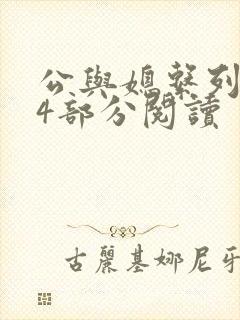 公與媳繫列
4部分閱讀
古麗基娜尼牙